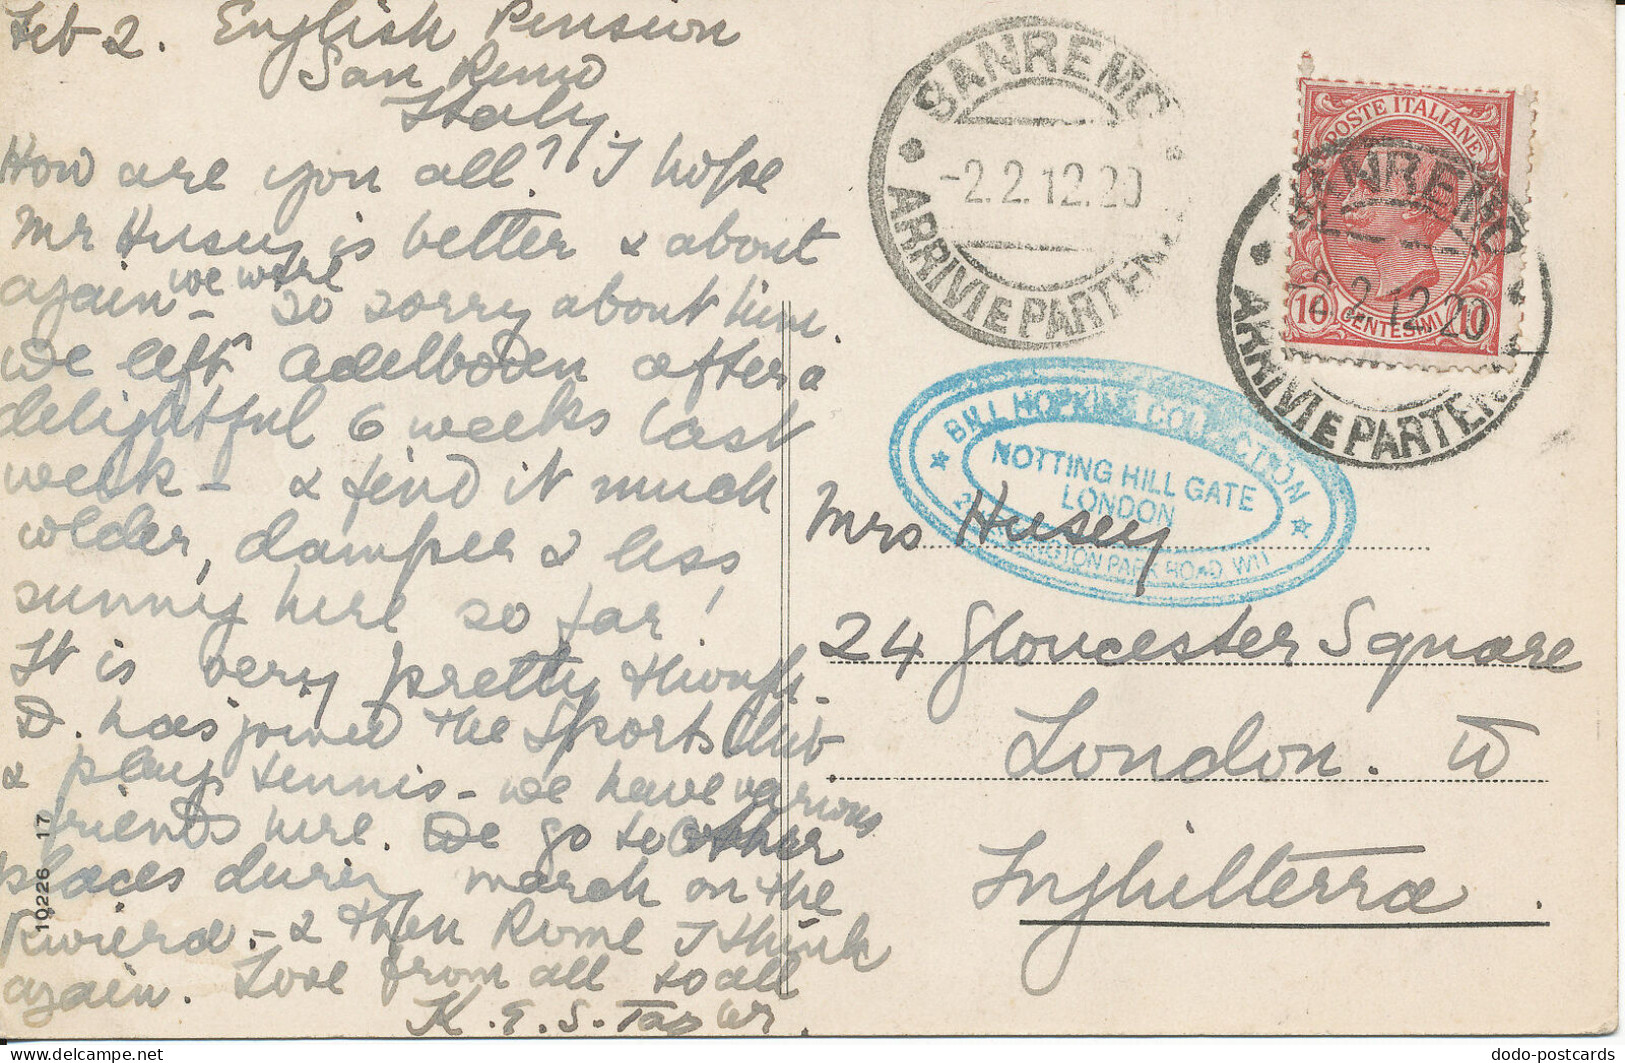 Feb 2. English Pension
San Remo
Italy.
How are you all? I hope
Mr Husey is better & about
again - we were so sorry about him.
We left Adelboden after a
delightful 6 weeks last
week - & find it much
colder, damper & less
sunny here so far!
It is very pretty though -
D. has joined the Sports Club
& play tennis - we have various
friends here. We go to other
places during March on the
Riviera - & then Rome I think
again. Love from all to all
K. E. S. Tayler.
10226 17
SANREMO
-2.2.12.20
ARRIVI E PARTEN
POSTE ITALIANE
10 CENTESIMI 10
SANREMO
-2.2.12.20
ARRIVI E PARTEN
BILL HOPKINS COLLECTION
NOTTING HILL GATE
LONDON
KENSINGTON PARK ROAD W11
Mrs Husey
24 Gloucester Square
London. W
Inghilterra.
dodo-postcards